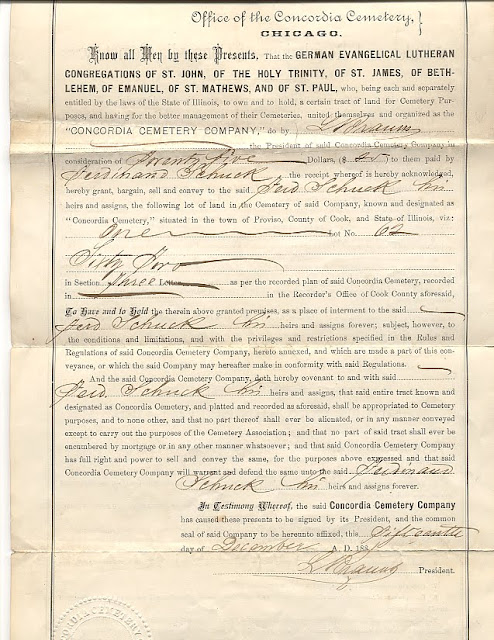 Office of the Concordia Cemetery, }
CHICAGO.
Know all Men by these Presents, That the GERMAN EVANGELICAL LUTHERAN
CONGREGATIONS OF ST. JOHN, OF THE HOLY TRINITY, OF ST. JAMES, OF BETH-
LEHEM, OF EMANUEL, OF ST. MATHEWS, AND OF ST. PAUL, who, being each and separately
entitled by the laws of the State of Illinois, to own and to hold, a certain tract of land for Cemetery Pur-
poses, and having for the better management of their Cemeteries, united themselves and organized as the
"CONCORDIA CEMETERY COMPANY," do by
the President of said Concordia Cemetery Company in
consideration of Twenty five Dollars, ($ to them paid by
Ferdinand Schuck the receipt whereof is hereby acknowledged,
hereby grant, bargain, sell and convey to the said Ferd Schuck his
heirs and assigns, the following lot of land in the Cemetery of said Company, known and designated as
"Concordia Cemetery," situated in the town of Proviso, County of Cook, and State of Illinois, viz:
One Lot No. 62
Sixty two
in Section Three Letter as per the recorded plan of said Concordia Cemetery, recorded
in in the Recorder's Office of Cook County aforesaid,
To Have and to Hold the therein above granted premises, as a place of interment to the said
Ferd Schuck his heirs and assigns forever; subject, however, to
the conditions and limitations, and with the privileges and restrictions specified in the Rules and
Regulations of said Concordia Cemetery Company, hereto annexed, and which are made a part of this con-
veyance, or which the said Company may hereafter make in conformity with said Regulations.
And the said Concordia Cemetery Company, doth hereby covenant to and with said
Ferd. Schuck his heirs and assigns, that said entire tract known and
designated as Concordia Cemetery, and platted and recorded as aforesaid, shall be appropriated to Cemetery
purposes, and to none other, and that no part thereof shall ever be alienated, or in any manner conveyed
except to carry out the purposes of the Cemetery Association; and that no part of said tract shall ever be
encumbered by mortgage or in any other manner whatsoever; and that said Concordia Cemetery Company
has full right and power to sell and convey the same, for the purposes above expressed and that said
Concordia Cemetery Company will warrant and defend the same unto the said Ferdinand
Schuck his heirs and assigns forever.
In Testimony Whereof, the said Concordia Cemetery Company
has caused these presents to be signed by its President, and the common
seal of said Company to be hereunto affixed, this fifteenth
day of December A. D. 188
President.